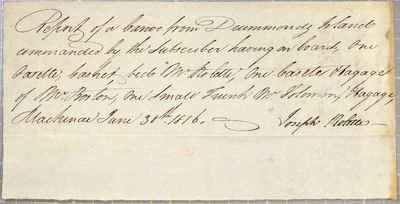 Report of a Canoe from Drummonds Island
commanded by the Subscriber having on board, One
Casette, basket, bed Mr Rolette, One Casete Bagage
of Mr Rolston, One Small Trunk Mr Bagage,
Mackinac June 30th 1816. Joseph Rolette